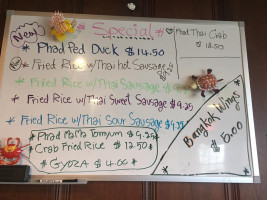 New
Special
Phad Ped Duck $14.50
Fried Rice w/Thai hot Sausage
Fried Rice w/Thai Sausage
Fried Rice w/Thai Sweet Sausage $9.25
Fried Rice w/Thai Sour Sausage $9.25
Phad Mama Tomyum $9.25
Crab Fried Rice $12.50
Gyoza $4.00
Phad Thai Crab
$12.50
Bangkok Wings
$6.00